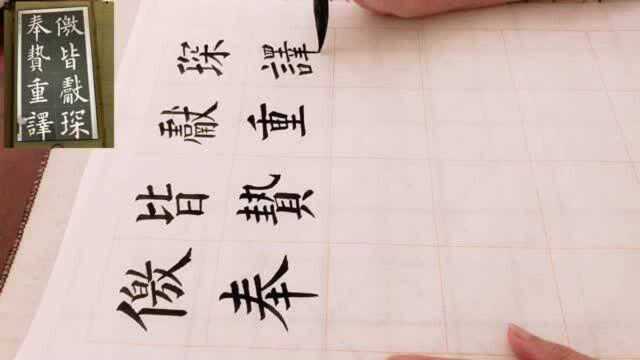 儌皆獻琛
奉贄重譯
儌皆獻琛
奉贄重譯